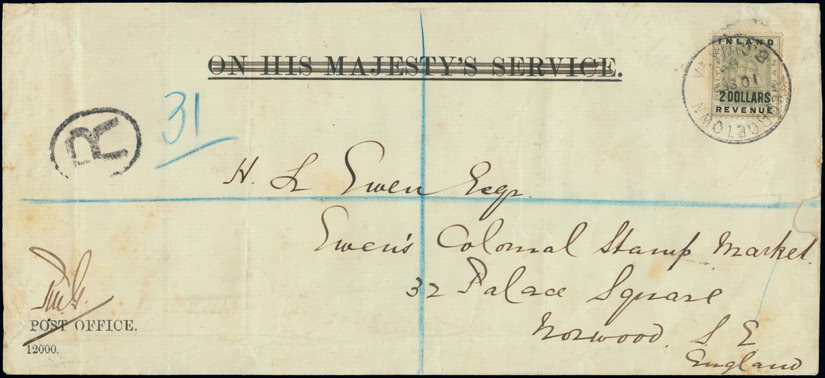 ON HIS MAJESTY'S SERVICE.
INLAND
2 DOLLARS
REVENUE
R
31
H L Ewen Esqr.
Ewen's Colonial Stamp Market.
32 Palace Square
Norwood. S E
England
POST OFFICE.
12000.